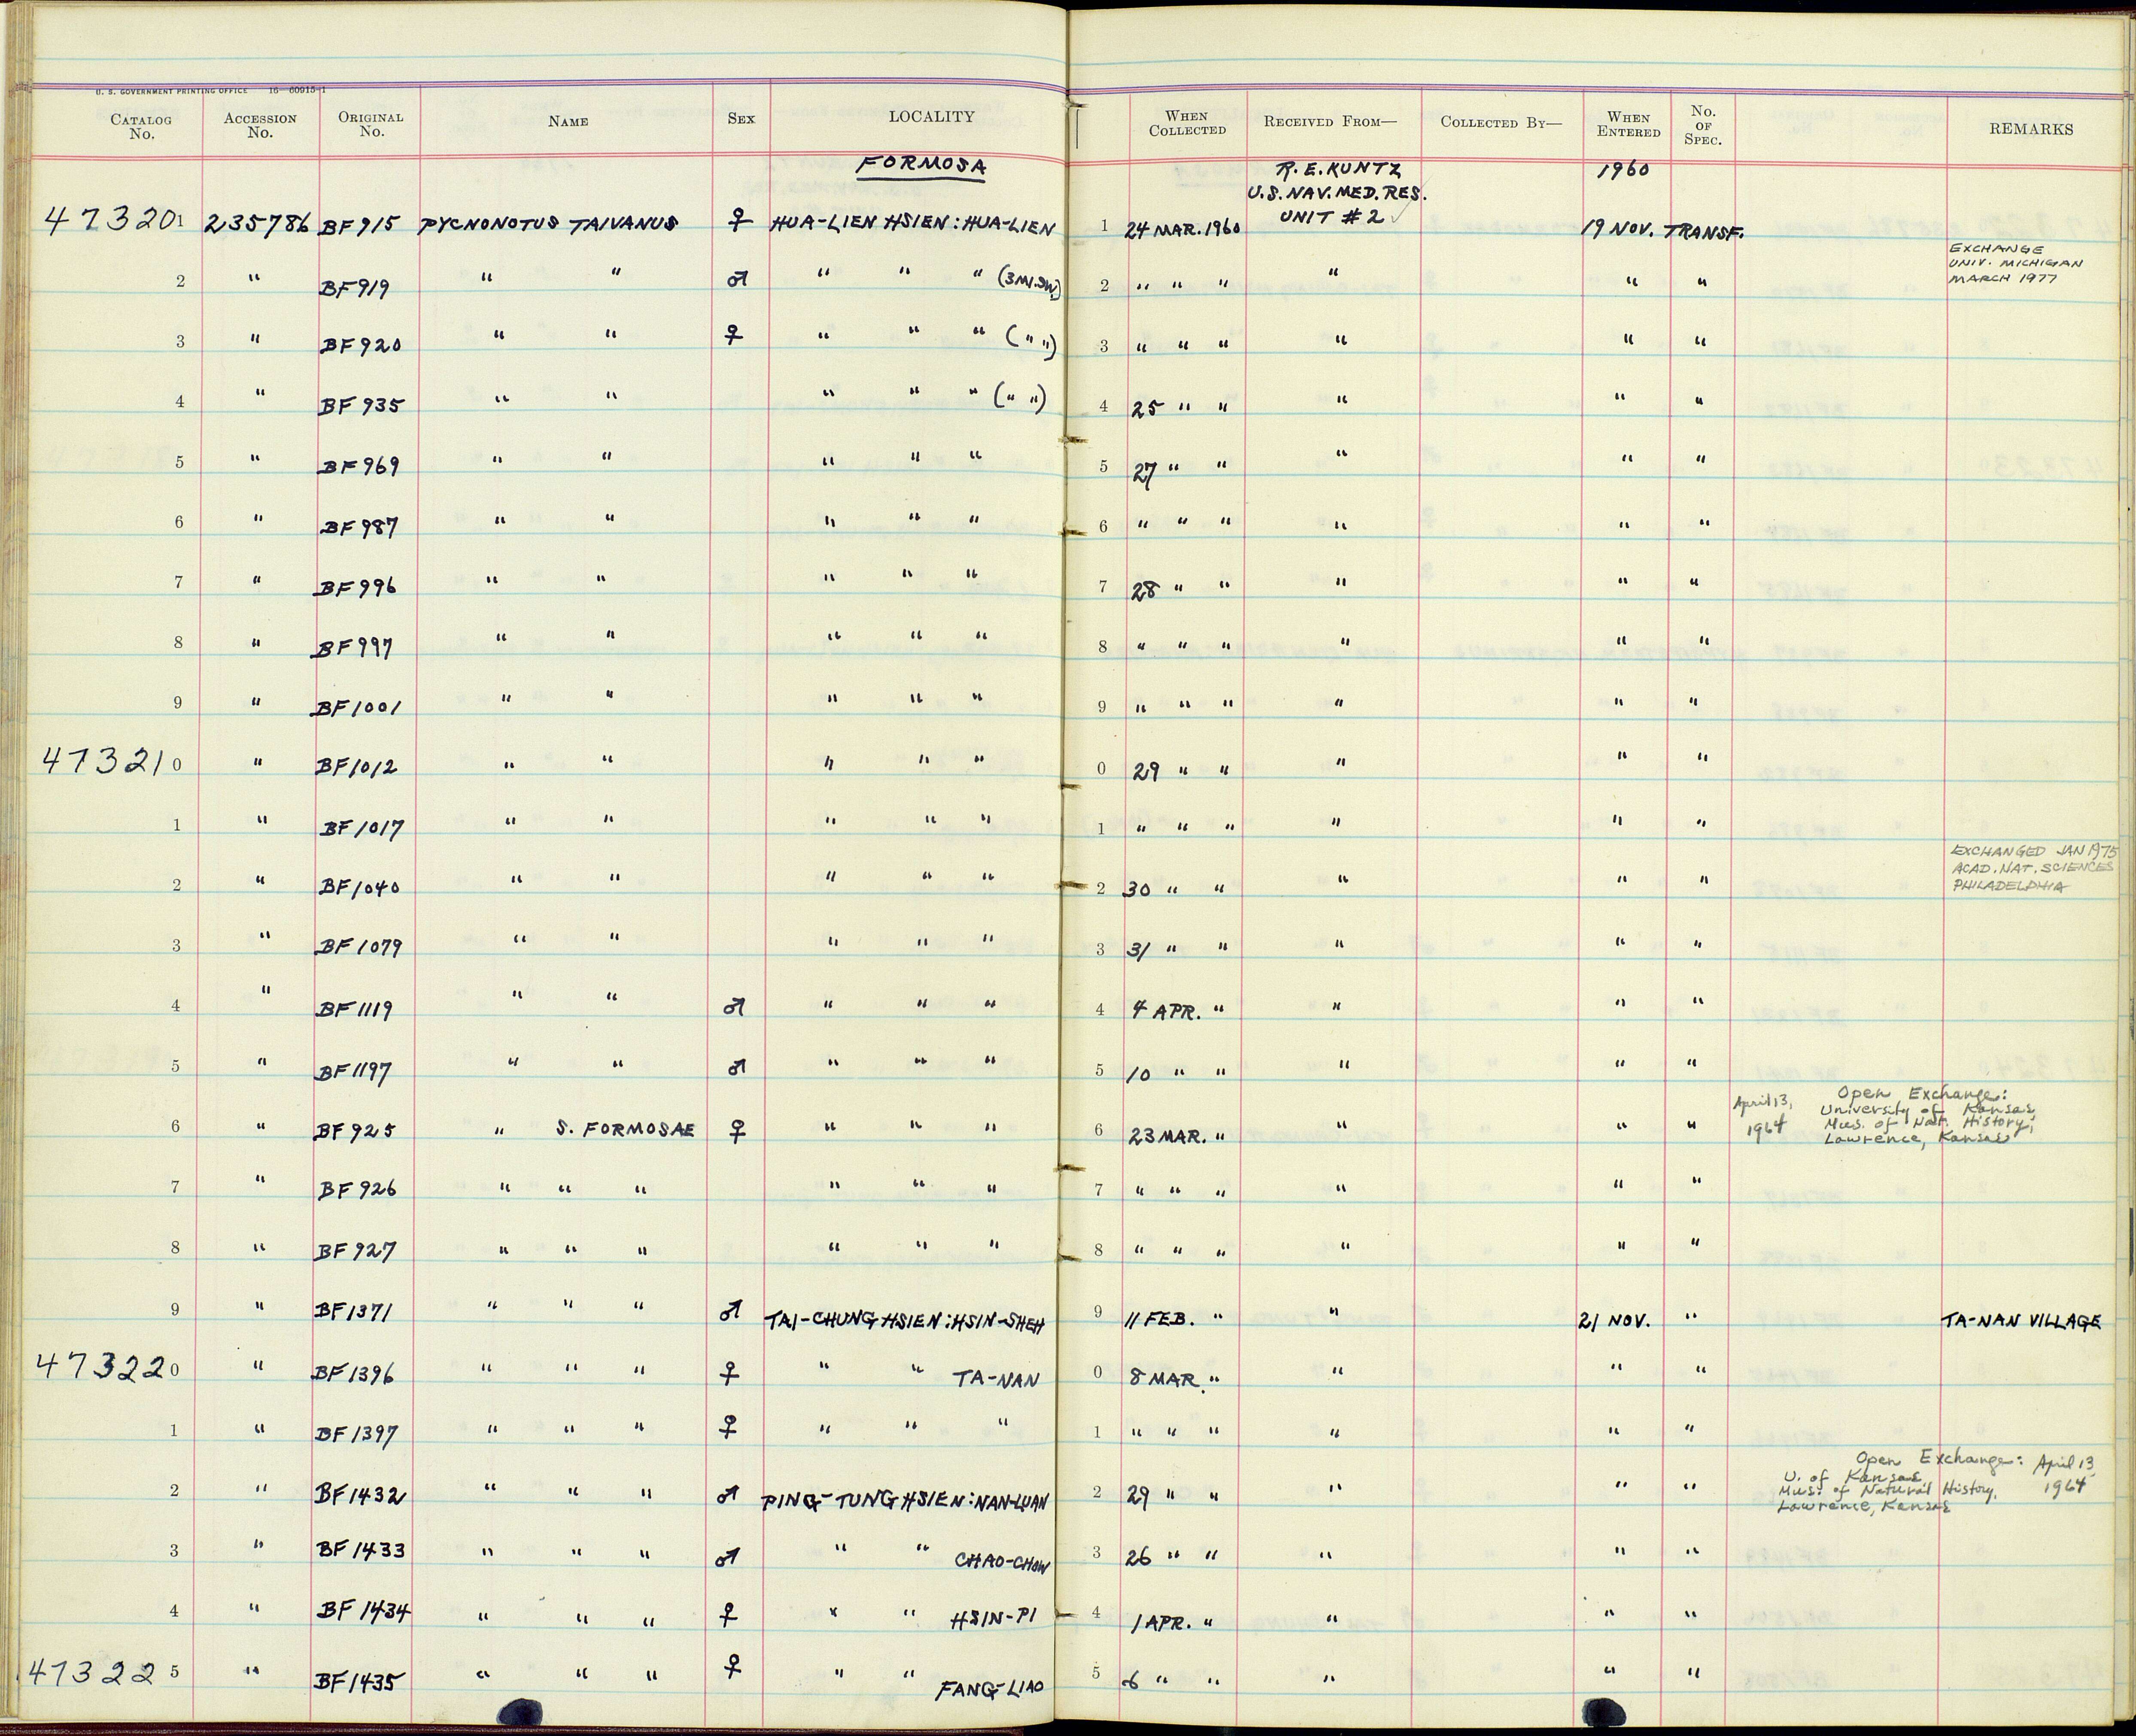 U. S. GOVERNMENT PRINTING OFFICE 16—60915-1
CATALOG No. ACCESSION No. ORIGINAL No. NAME SEX LOCALITY WHEN COLLECTED RECEIVED FROM— COLLECTED BY— WHEN ENTERED No. OF SPEC. REMARKS
FORMOSA R. E. KUNTZ 1960
U.S. NAV. MED. RES.
UNIT #2 ✓
473201 235786 BF915 PYCNONOTUS TAIVANUS ♀ HUA-LIEN HSIEN: HUA-LIEN 1 24 MAR. 1960 19 NOV. TRANSF.
EXCHANGE
UNIV. MICHIGAN
MARCH 1977
2 " BF919 " " ♂ " " " (3MI.SW.) 2 " " " " " "
3 " BF920 " " ♀ " " " (" ") 3 " " " " " "
4 " BF935 " " " " " (" ") 4 25 " " " " "
5 " BF969 " " " " " 5 27 " " " " "
6 " BF987 " " " " " 6 " " " " " "
7 " BF996 " " " " " 7 28 " " " " "
8 " BF997 " " " " " 8 " " " " " "
9 " BF1001 " " " " " 9 " " " " " "
473210 " BF1012 " " " " " 0 29 " " " " "
1 " BF1017 " " " " " 1 " " " " " "
EXCHANGED JAN 1975
ACAD. NAT. SCIENCES
PHILADELPHIA
2 " BF1040 " " " " " 2 30 " " " " "
3 " BF1079 " " " " " 3 31 " " " " "
4 " BF1119 " " ♂ " " " 4 4 APR. " " " "
5 " BF1197 " " ♂ " " " 5 10 " " " " "
April 13, 1964 Open Exchange:
University of Kansas,
Mus. of Nat. History,
Lawrence, Kansas
6 " BF925 " S. FORMOSAE ♀ " " " 6 23 MAR. " " " "
7 " BF926 " " " " " " 7 " " " " " "
8 " BF927 " " " " " " 8 " " " " " "
9 " BF1371 " " " ♂ TAI-CHUNG HSIEN: HSIN-SHEH 9 11 FEB. " " 21 NOV. " TA-NAN VILLAGE
473220 " BF1396 " " " ♀ " " TA-NAN 0 8 MAR. " " " "
1 " BF1397 " " " ♀ " " " 1 " " " " " "
Open Exchange: April 13, 1964
U. of Kansas
Mus. of Natural History,
Lawrence, Kansas
2 " BF1432 " " " ♂ PING-TUNG HSIEN: NAN-LUAN 2 29 " " " " "
3 " BF1433 " " " ♂ " " CHAO-CHOW 3 26 " " " " "
4 " BF1434 " " " ♀ " " HSIN-PI 4 1 APR. " " " "
473225 " BF1435 " " " ♀ " " FANG-LIAO 5 6 " " " " "